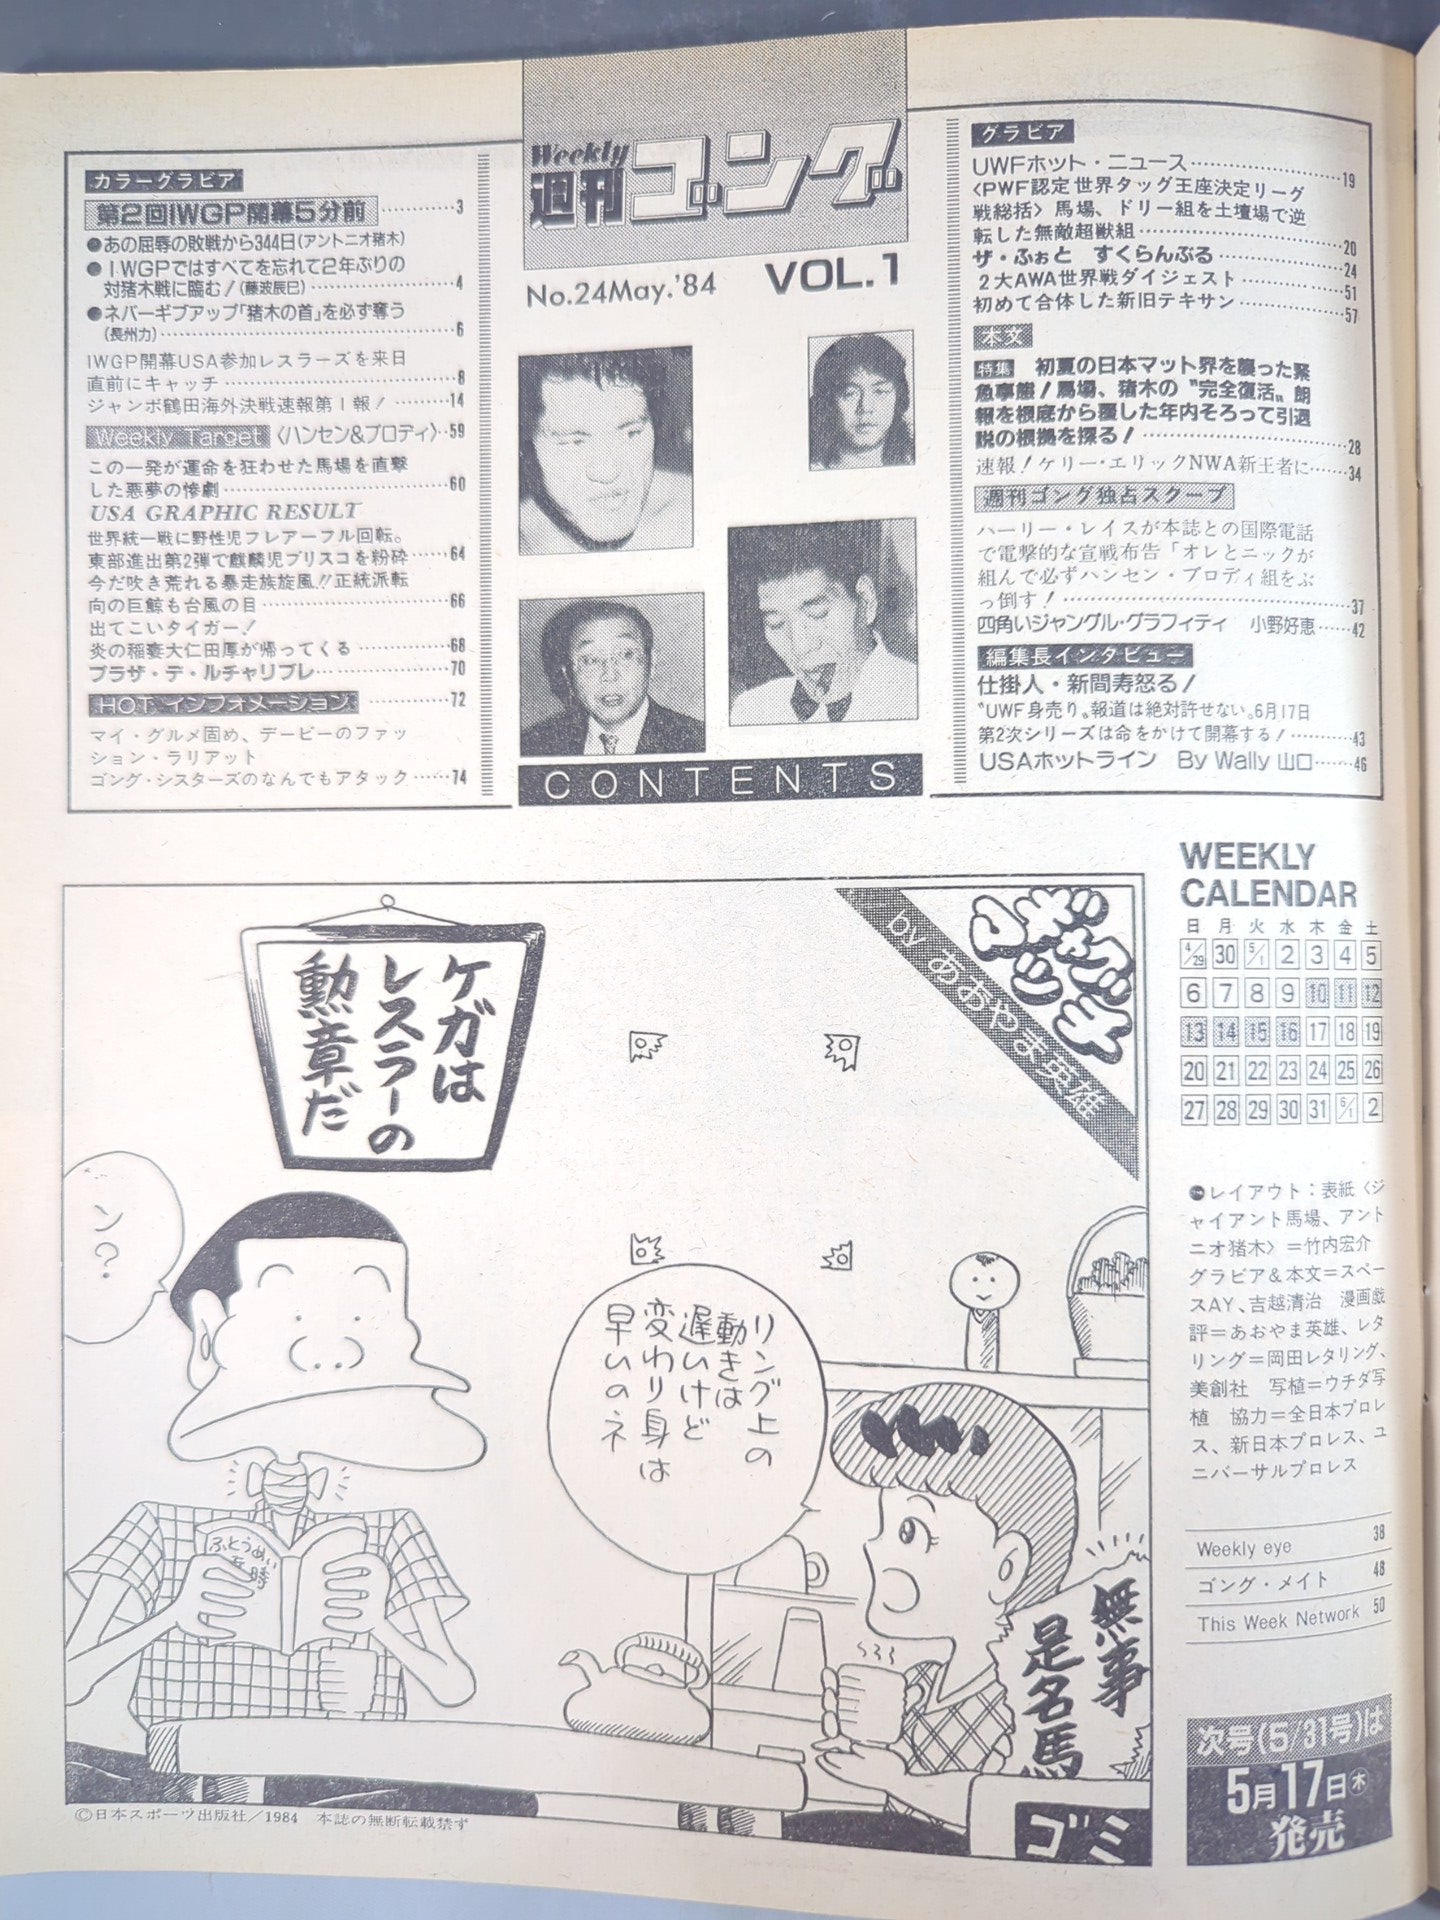 カラーグラビア
第2回IWGP開幕5分前……3
●あの屈辱の敗戦から344日(アントニオ猪木)
●IWGPではすべてを忘れて2年ぶりの
対猪木戦に臨む!(藤波辰巳)……4
●ネバーギブアップ「猪木の首」を必ず奪う
(長州力)……6
IWGP開幕USA参加レスラーズを来日
直前にキャッチ……8
ジャンボ鶴田海外決戦速報第1報!……14
Weekly Target〈ハンセン&ブロディ〉‥59
この一発が運命を狂わせた馬場を直撃
した悪夢の惨劇……60
USA GRAPHIC RESULT
世界統一戦に野性児フレアーフル回転。
東部進出第2弾で麒麟児ブリスコを粉砕……64
今だ吹き荒れる暴走族旋風!!正統派転
向の巨鯨も台風の目……66
出てこいタイガー!
炎の稲妻大仁田厚が帰ってくる……68
プラザ・デ・ルチャリブレ……70
HOT インフォメーション……72
マイ・グルメ固め、デービーのファッ
ション・ラリアット
ゴング・シスターズのなんでもアタック……74
Weekly
週刊ゴング
No.24May.'84 VOL.1
CONTENTS
グラビア
UWFホット・ニュース……19
〈PWF認定世界タッグ王座決定リーグ
戦総括〉馬場、ドリー組を土壇場で逆
転した無敵超獣組……20
ザ・ふぉと すくらんぶる……24
2大AWA世界戦ダイジェスト……51
初めて合体した新旧テキサン……57
本文
特集 初夏の日本マット界を襲った緊
急事態!馬場、猪木の〝完全復活〟朗
報を根底から覆した年内そろって引退
説の根拠を探る!……28
速報!ケリー・エリックNWA新王者に……34
週刊ゴング独占スクープ
ハーリー・レイスが本誌との国際電話
で電撃的な宣戦布告「オレとニックが
組んで必ずハンセン・ブロディ組をぶ
っ倒す!……37
四角いジャングル・グラフィティ 小野好恵……42
編集長インタビュー
仕掛人・新間寿怒る!
〝UWF身売り〟報道は絶対許せない。6月17日
第2次シリーズは命をかけて開幕する!……43
USAホットライン By Wally 山口……46
マンガギャグマッチ
by あおやま英雄
ケガは
レスラーの
勲章だ
ン?
リング上の
動きは
遅いけど
変わり身は
早いのネ
ふとうめい
な時
無事
是名馬
ゴミ
©日本スポーツ出版社/1984 本誌の無断転載禁ず
WEEKLY
CALENDAR
日 月 火 水 木 金 土
4/29 30 5/1 2 3 4 5
6 7 8 9 10 11 12
13 14 15 16 17 18 19
20 21 22 23 24 25 26
27 28 29 30 31 6/1 2
●レイアウト:表紙〈ジ
ャイアント馬場、アント
ニオ猪木〉=竹内宏介
グラビア&本文=スペー
スAY、吉越清治 漫画戯
評=あおやま英雄、レタ
リング=岡田レタリング、
美創社 写植=ウチダ写
植 協力=全日本プロレ
ス、新日本プロレス、ユ
ニバーサルプロレス
Weekly eye 38
ゴング・メイト 48
This Week Network 50
次号(5/31号)は
5月17日㊍
発売